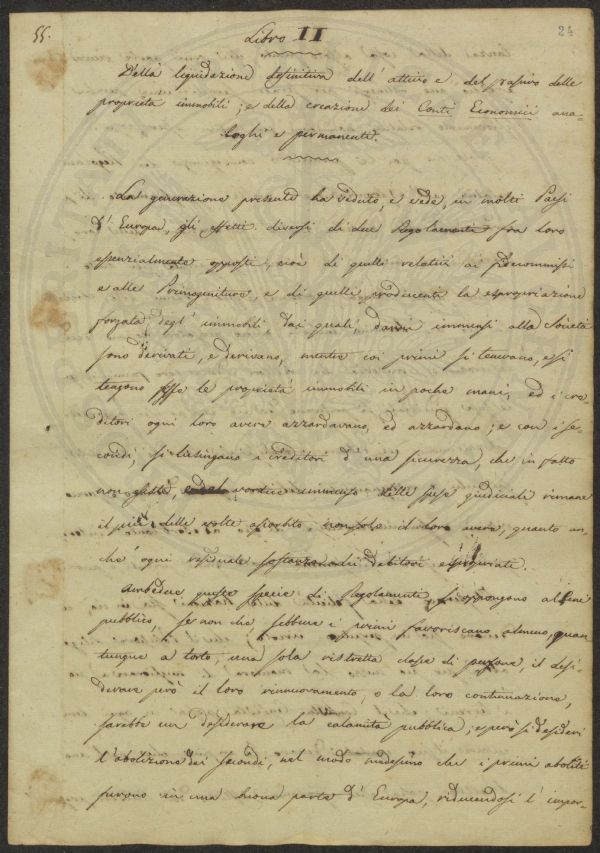 55.
24
Libro II
Della liquidazione definitiva dell'attivo e del passivo delle
proprietà immobili; e della creazione dei Conti Economici ana-
loghi e permanenti.
La generazione presente ha veduto, e vede, in molti Paesi
d'Europa, gli effetti diversi di due Regolamenti fra loro
essenzialmente opposti, cioè di quelli relativi ai fidecommissi
e alle Primogeniture, e di quelli producenti la espropriazione
forzata degl'immobili dai quali, danni immensi alla Società
sono derivati, e derivano, mentre coi primi si tenevano, e si
tengono le proprietà immobili in poche mani, ed i cre-
ditori ogni loro avere azzardavano, ed azzardano; e con i se-
condi, si lusingano i creditori d'una sicurezza, che in fatto
non esiste, vortice immenso delle spese giudiciali rimane
il più delle volte assorbito, non solo il loro avere, quanto an-
che ogni residuale sostanza dei debitori espropriati.
Ambedue queste specie di Regolamenti, si oppongono al bene
pubblico, se non che sebbene i primi favoriscano almeno, quan
tunque a torto, una sola ristretta classe di persone, il desi-
derare però il loro rinnuovamento, o la loro continuazione,
sarebbe un desiderare la calamità pubblica; e però si desideri
l'abolizione dei secondi, nel modo medesimo che i primi aboliti
furono in una buona parte d'Europa, riducendosi l'impor-